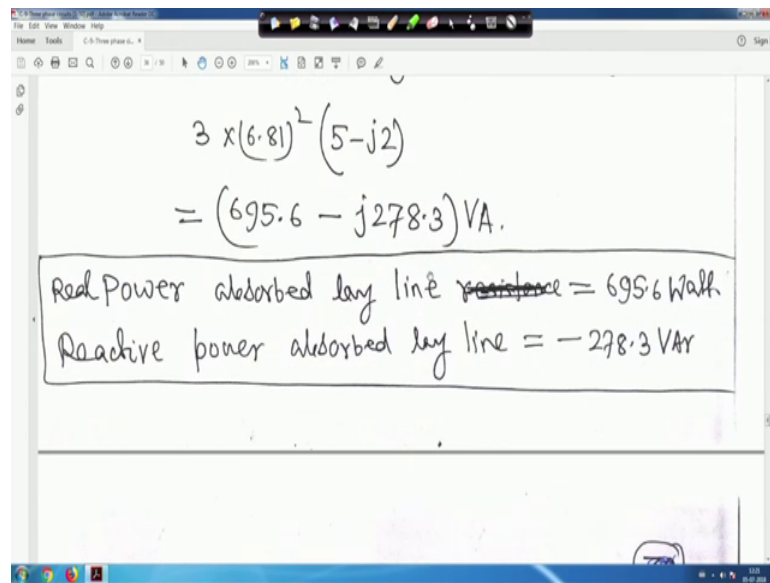 C-9-Three phase circuits
File Edit View Window Help
Home Tools C-9-Three phase c... × Sign
3 × (6.81)² (5-j2)
= (695.6 - j278.3) VA.
Real Power absorbed by line = 695.6 Watt
Reactive power absorbed by line = - 278.3 VAr